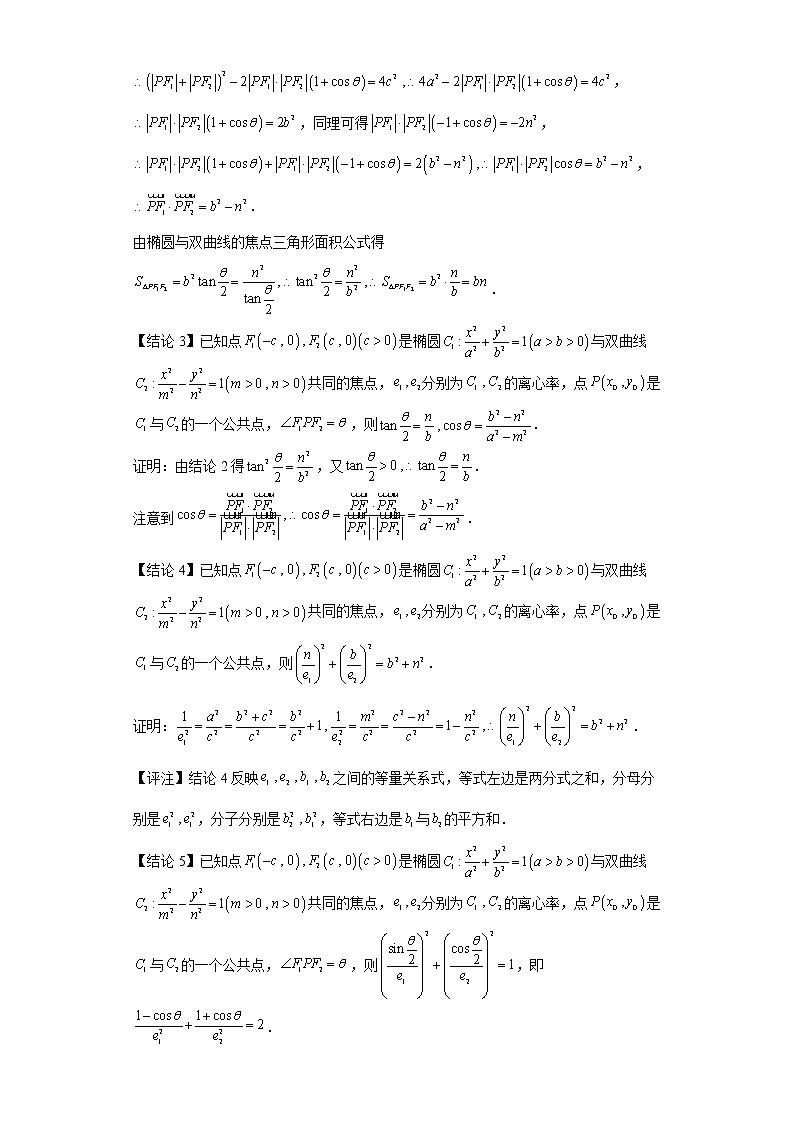 ∴(|PF₁|+|PF₂|)²−2|PF₁|·|PF₂|(1+cosθ)=4c²,∴4a²−2|PF₁|·|PF₂|(1+cosθ)=4c²,
∴|PF₁|·|PF₂|(1+cosθ)=2b²,同理可得|PF₁|·|PF₂|(−1+cosθ)=−2n²,
∴|PF₁|·|PF₂|(1+cosθ)+|PF₁|·|PF₂|(−1+cosθ)=2(b²−n²),∴|PF₁|·|PF₂|cosθ=b²−n²,
∴PF₁·PF₂=b²−n².
由椭圆与双曲线的焦点三角形面积公式得
S△PF₁F₂=b²tan(θ/2)=n²/tan(θ/2),∴tan²(θ/2)=n²/b²,∴S△PF₁F₂=b²·n/b=bn.
【结论3】已知点F₁(−c,0),F₂(c,0)(c>0)是椭圆C₁:x²/a²+y²/b²=1(a>b>0)与双曲线
C₂:x²/m²−y²/n²=1(m>0,n>0)共同的焦点,e₁,e₂分别为C₁,C₂的离心率,点P(x₀,y₀)是
C₁与C₂的一个公共点,∠F₁PF₂=θ,则tan(θ/2)=n/b,cosθ=(b²−n²)/(a²−m²).
证明:由结论2得tan²(θ/2)=n²/b²,又tan(θ/2)>0,∴tan(θ/2)=n/b.
注意到cosθ=(PF₁·PF₂)/(|PF₁|·|PF₂|),∴cosθ=(PF₁·PF₂)/(|PF₁|·|PF₂|)=(b²−n²)/(a²−m²).
【结论4】已知点F₁(−c,0),F₂(c,0)(c>0)是椭圆C₁:x²/a²+y²/b²=1(a>b>0)与双曲线
C₂:x²/m²−y²/n²=1(m>0,n>0)共同的焦点,e₁,e₂分别为C₁,C₂的离心率,点P(x₀,y₀)是
C₁与C₂的一个公共点,则(n/e₁)²+(b/e₂)²=b²+n².
证明:1/e₁²=a²/c²=(b²+c²)/c²=b²/c²+1,1/e₂²=m²/c²=(c²−n²)/c²=1−n²/c²,∴(n/e₁)²+(b/e₂)²=b²+n².
【评注】结论4反映e₁,e₂,b₁,b₂之间的等量关系式,等式左边是两分式之和,分母分
别是e₁²,e₁²,分子分别是b₂²,b₁²,等式右边是b₁与b₂的平方和.
【结论5】已知点F₁(−c,0),F₂(c,0)(c>0)是椭圆C₁:x²/a²+y²/b²=1(a>b>0)与双曲线
C₂:x²/m²−y²/n²=1(m>0,n>0)共同的焦点,e₁,e₂分别为C₁,C₂的离心率,点P(x₀,y₀)是
C₁与C₂的一个公共点,∠F₁PF₂=θ,则(sin(θ/2)/e₁)²+(cos(θ/2)/e₂)²=1,即
(1−cosθ)/e₁²+(1+cosθ)/e₂²=2.